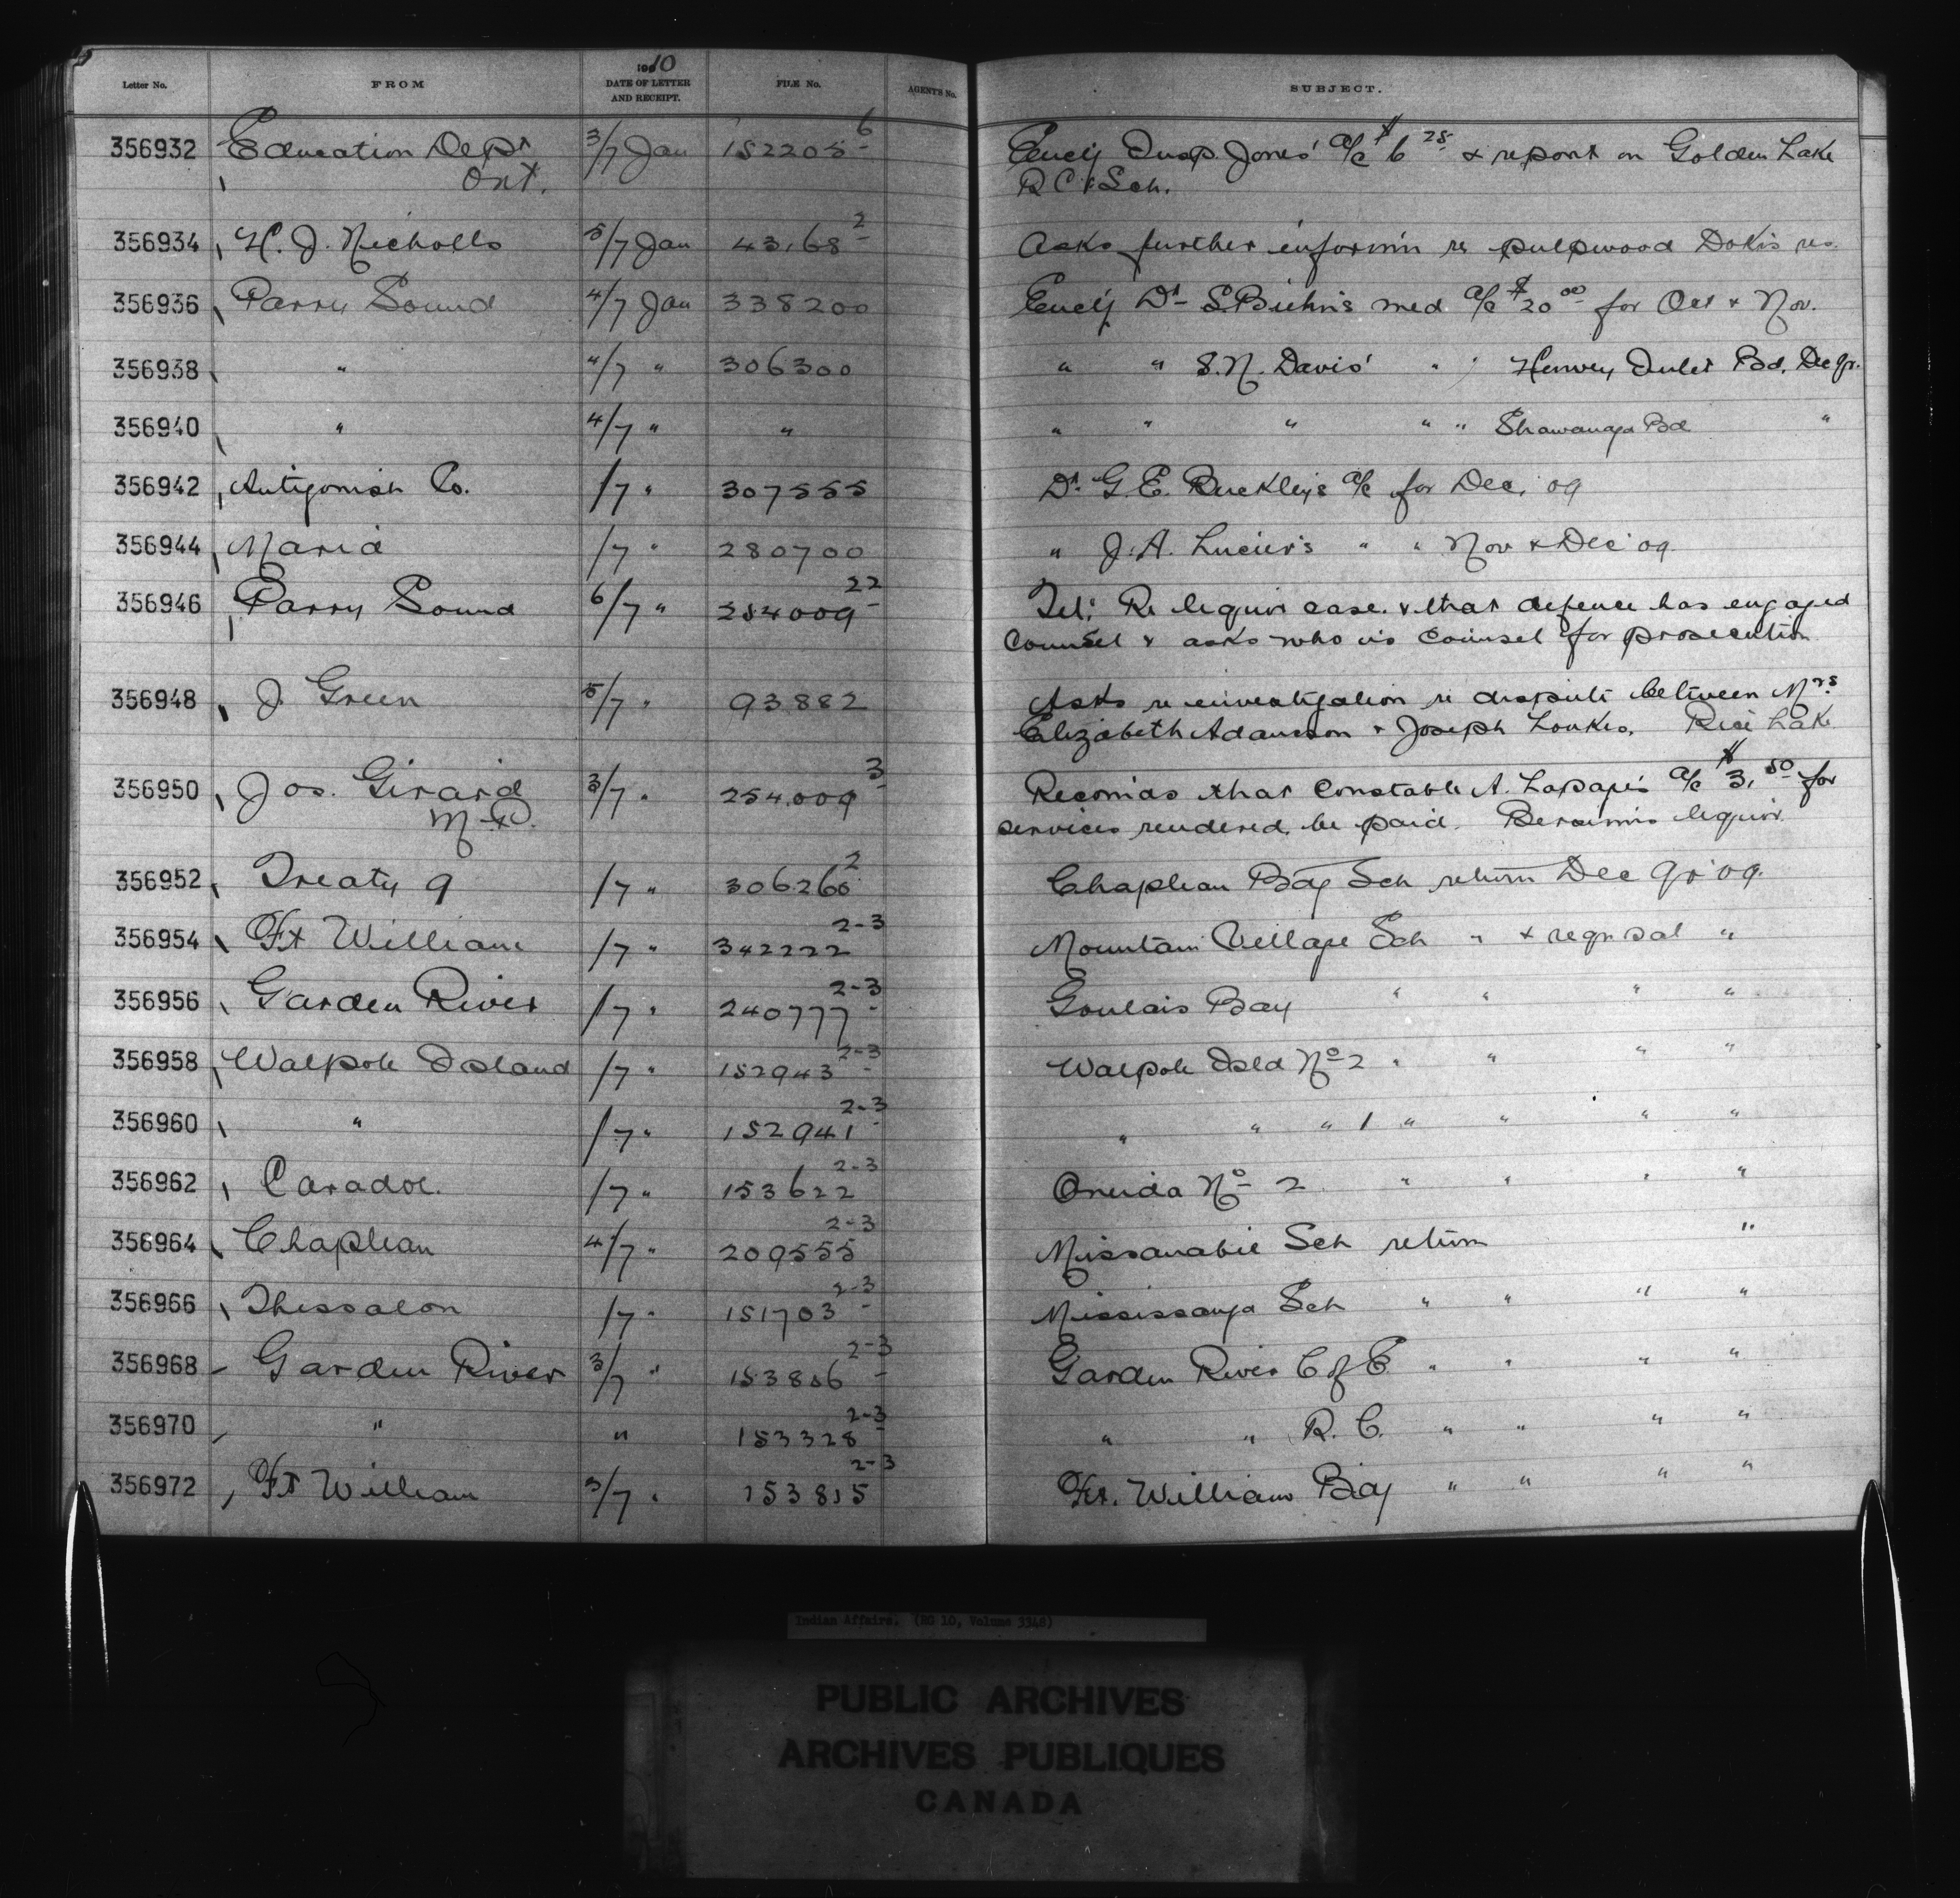 Letter No. FROM 1910 DATE OF LETTER AND RECEIPT. FILE No. AGENT'S No. SUBJECT.
356932 Education Dept 3/7 Jan 152205-6 Encg Insp. Jones' a/c $6 25 & report on Golden Lake
Ont. R C Sch.
356934 H. J. Nicholls 5/7 Jan 43,168-2 Asks further inform'n re pulpwood Dokis res.
356936 Parry Sound 4/7 Jan 338200 Encg Dr S. Biehn's med a/c $20 00 for Oct & Nov.
356938 " 4/7 " 306300 " " S. N. Davis' " Henvey Inlet Bd. Dec qr.
356940 " 4/7 " " " " " " " Shawanaga Bd "
356942 Antigonish Co. /7 " 307555 Dr. G. E. Buckley's a/c for Dec, 09
356944 Maria /7 " 280700 " J. A. Lucier's " " Nov & Dec '09.
356946 Parry Sound 6/7 " 254009-22 Tel: Re liquor case. & that defence has engaged
counsel & asks who is counsel for prosecution
356948 J. Green 5/7 " 93.882 Asks re investigation re dispute between Mrs
Elizabeth Adamson & Joseph Loukes. Rice Lake
356950 Jos. Girard 3/7 " 254,009-3 Recomds that Constable A. Lapage's a/c $3.50 for
M.P. services rendered, be paid. Bersimis liquor.
356952 Treaty 9 /7 " 306260-2 Chapleau Bdg Sch return Dec qr '09.
356954 Ft William /7 " 342222 2-3 Mountain Village Sch " & reqn sal "
356956 Garden River /7 " 240777-2-3 Goulais Bay " " " "
356958 Walpole Island /7 " 152943-2-3 Walpole Isld No 2 " " " "
356960 " /7 " 152941-2-3 " " " 1 " " " "
356962 Caradoc. /7 " 153622 2-3 Oneida No 2 " " " "
356964 Chapleau 4/7 " 209555 2-3 Missanabie Sch return "
356966 Thessalon /7 " 151703-2-3 Mississauga Sch " " " "
356968 Garden River 3/7 " 153806-2-3 Garden River C of E. " " " "
356970 " " 153328-2-3 " " R. C. " " " "
356972 Ft William 3/7 " 153815 2-3 Ft. William Bdg " " " "
Indian Affairs. (RG 10, Volume 3348)
PUBLIC ARCHIVES
ARCHIVES PUBLIQUES
CANADA